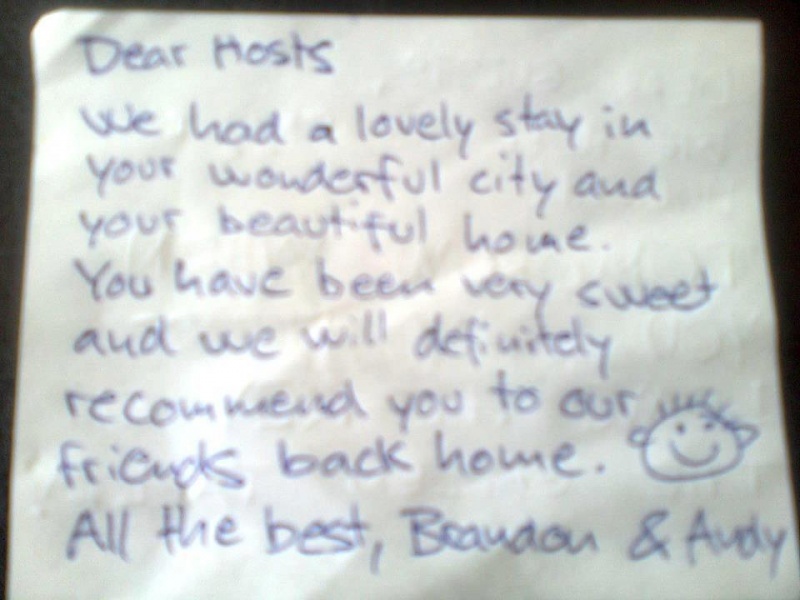 Dear Hosts
We had a lovely stay in
your wonderful city and
your beautiful home.
You have been very sweet
and we will definitely
recommend you to our
friends back home.
All the best, Brandon & Andy